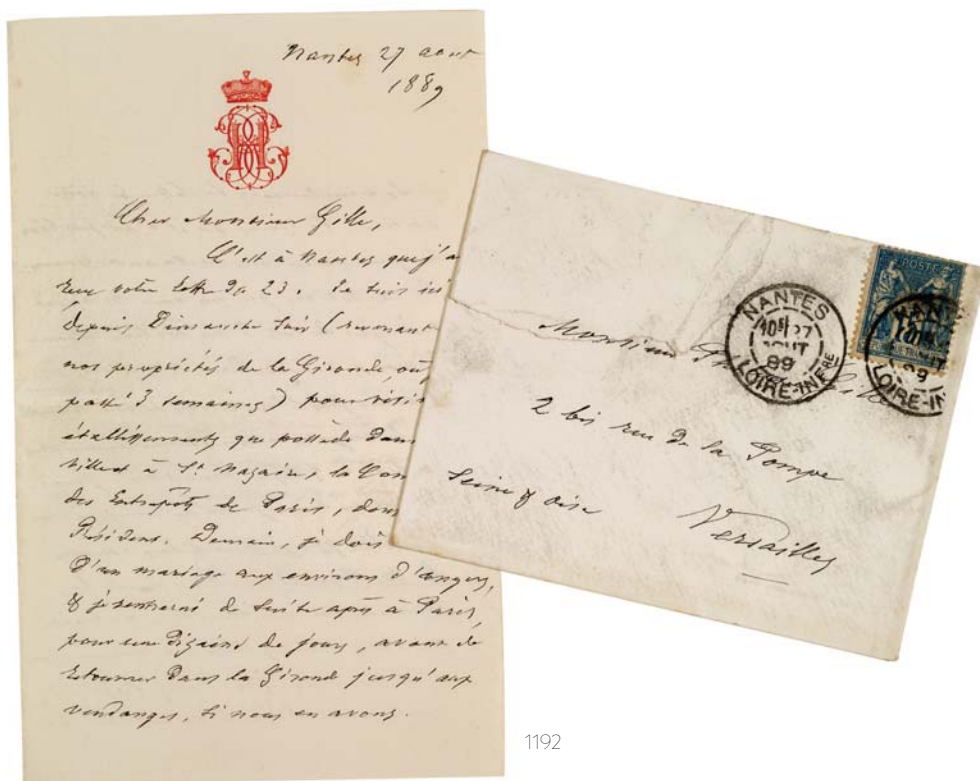 Nantes 27 aout
1889
Cher Monsieur Gille,
C'est à Nantes que j'a
reçu votre lettre du 23. Je suis ici
depuis Dimanche soir (revenant
nos propriétés de la Gironde, où
passé 3 semaines) pour visi
établissements que possède dans
ville et à St Nazaire, la Com
des Entrepôts de Paris, dont
Président. Demain, je dois
d'un mariage aux environs d'angers,
& je rentrerai de suite après à Paris,
pour une dizaine de jours, avant de
retourner dans la Gironde jusqu'aux
vendanges, si nous en avons.
Monsieur Ph
2 bis rue de la Pompe
Seine & oise
Versailles
NANTES
27
AOUT
89
LOIRE-INFRE
POSTE
NANT
89
LOIRE-IN
1192